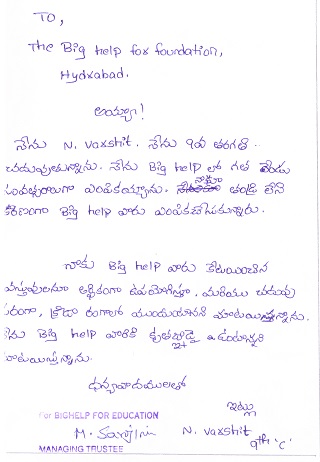 To,
The Big help for foundation,
Hydrabad.
అయ్యా!
నేను N. Varshit. నేను 9వ తరగతి
చదువుతున్నాను. నేను Big help లో గత రెండు
సంవత్సరాలుగా ఎంపికయ్యాను. నాకు తండ్రి లేని
కారణంగా Big help వారు ఎంపికచేసుకున్నారు.
నాకు Big help వారు కేటాయించిన
వస్తువులనూ ఆర్థికంగా ఉపయోగిస్తూ. మరియు చదువు
పరంగా, క్రీడా రంగాలలో ముందుంటానని చాటుతున్నాను.
నేను Big help వారికి కృతజ్ఞుడై ఉంటానని
చాటుతున్నాను.
ధన్యవాదములతో
ఇట్లు
N. Varshit
9th 'c'
For BIGHELP FOR EDUCATION
MANAGING TRUSTEE